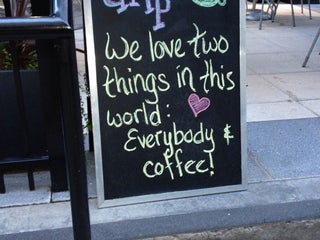 We love two
things in this
world:
Everybody &
coffee!